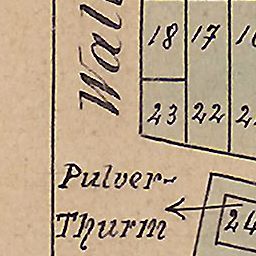 Wall
18 17 16
23 22 2
Pulver-
Thurm
24